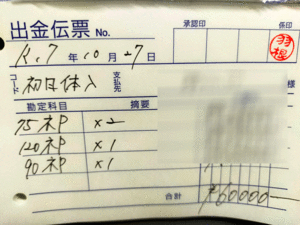 出金伝票 No. 承認印 係印
R.7年10月27日
コード 初日体入 支払先
勘定科目 摘要
75ネP ×2
120ネP ×1
90ネP ×1
合計 ¥60000